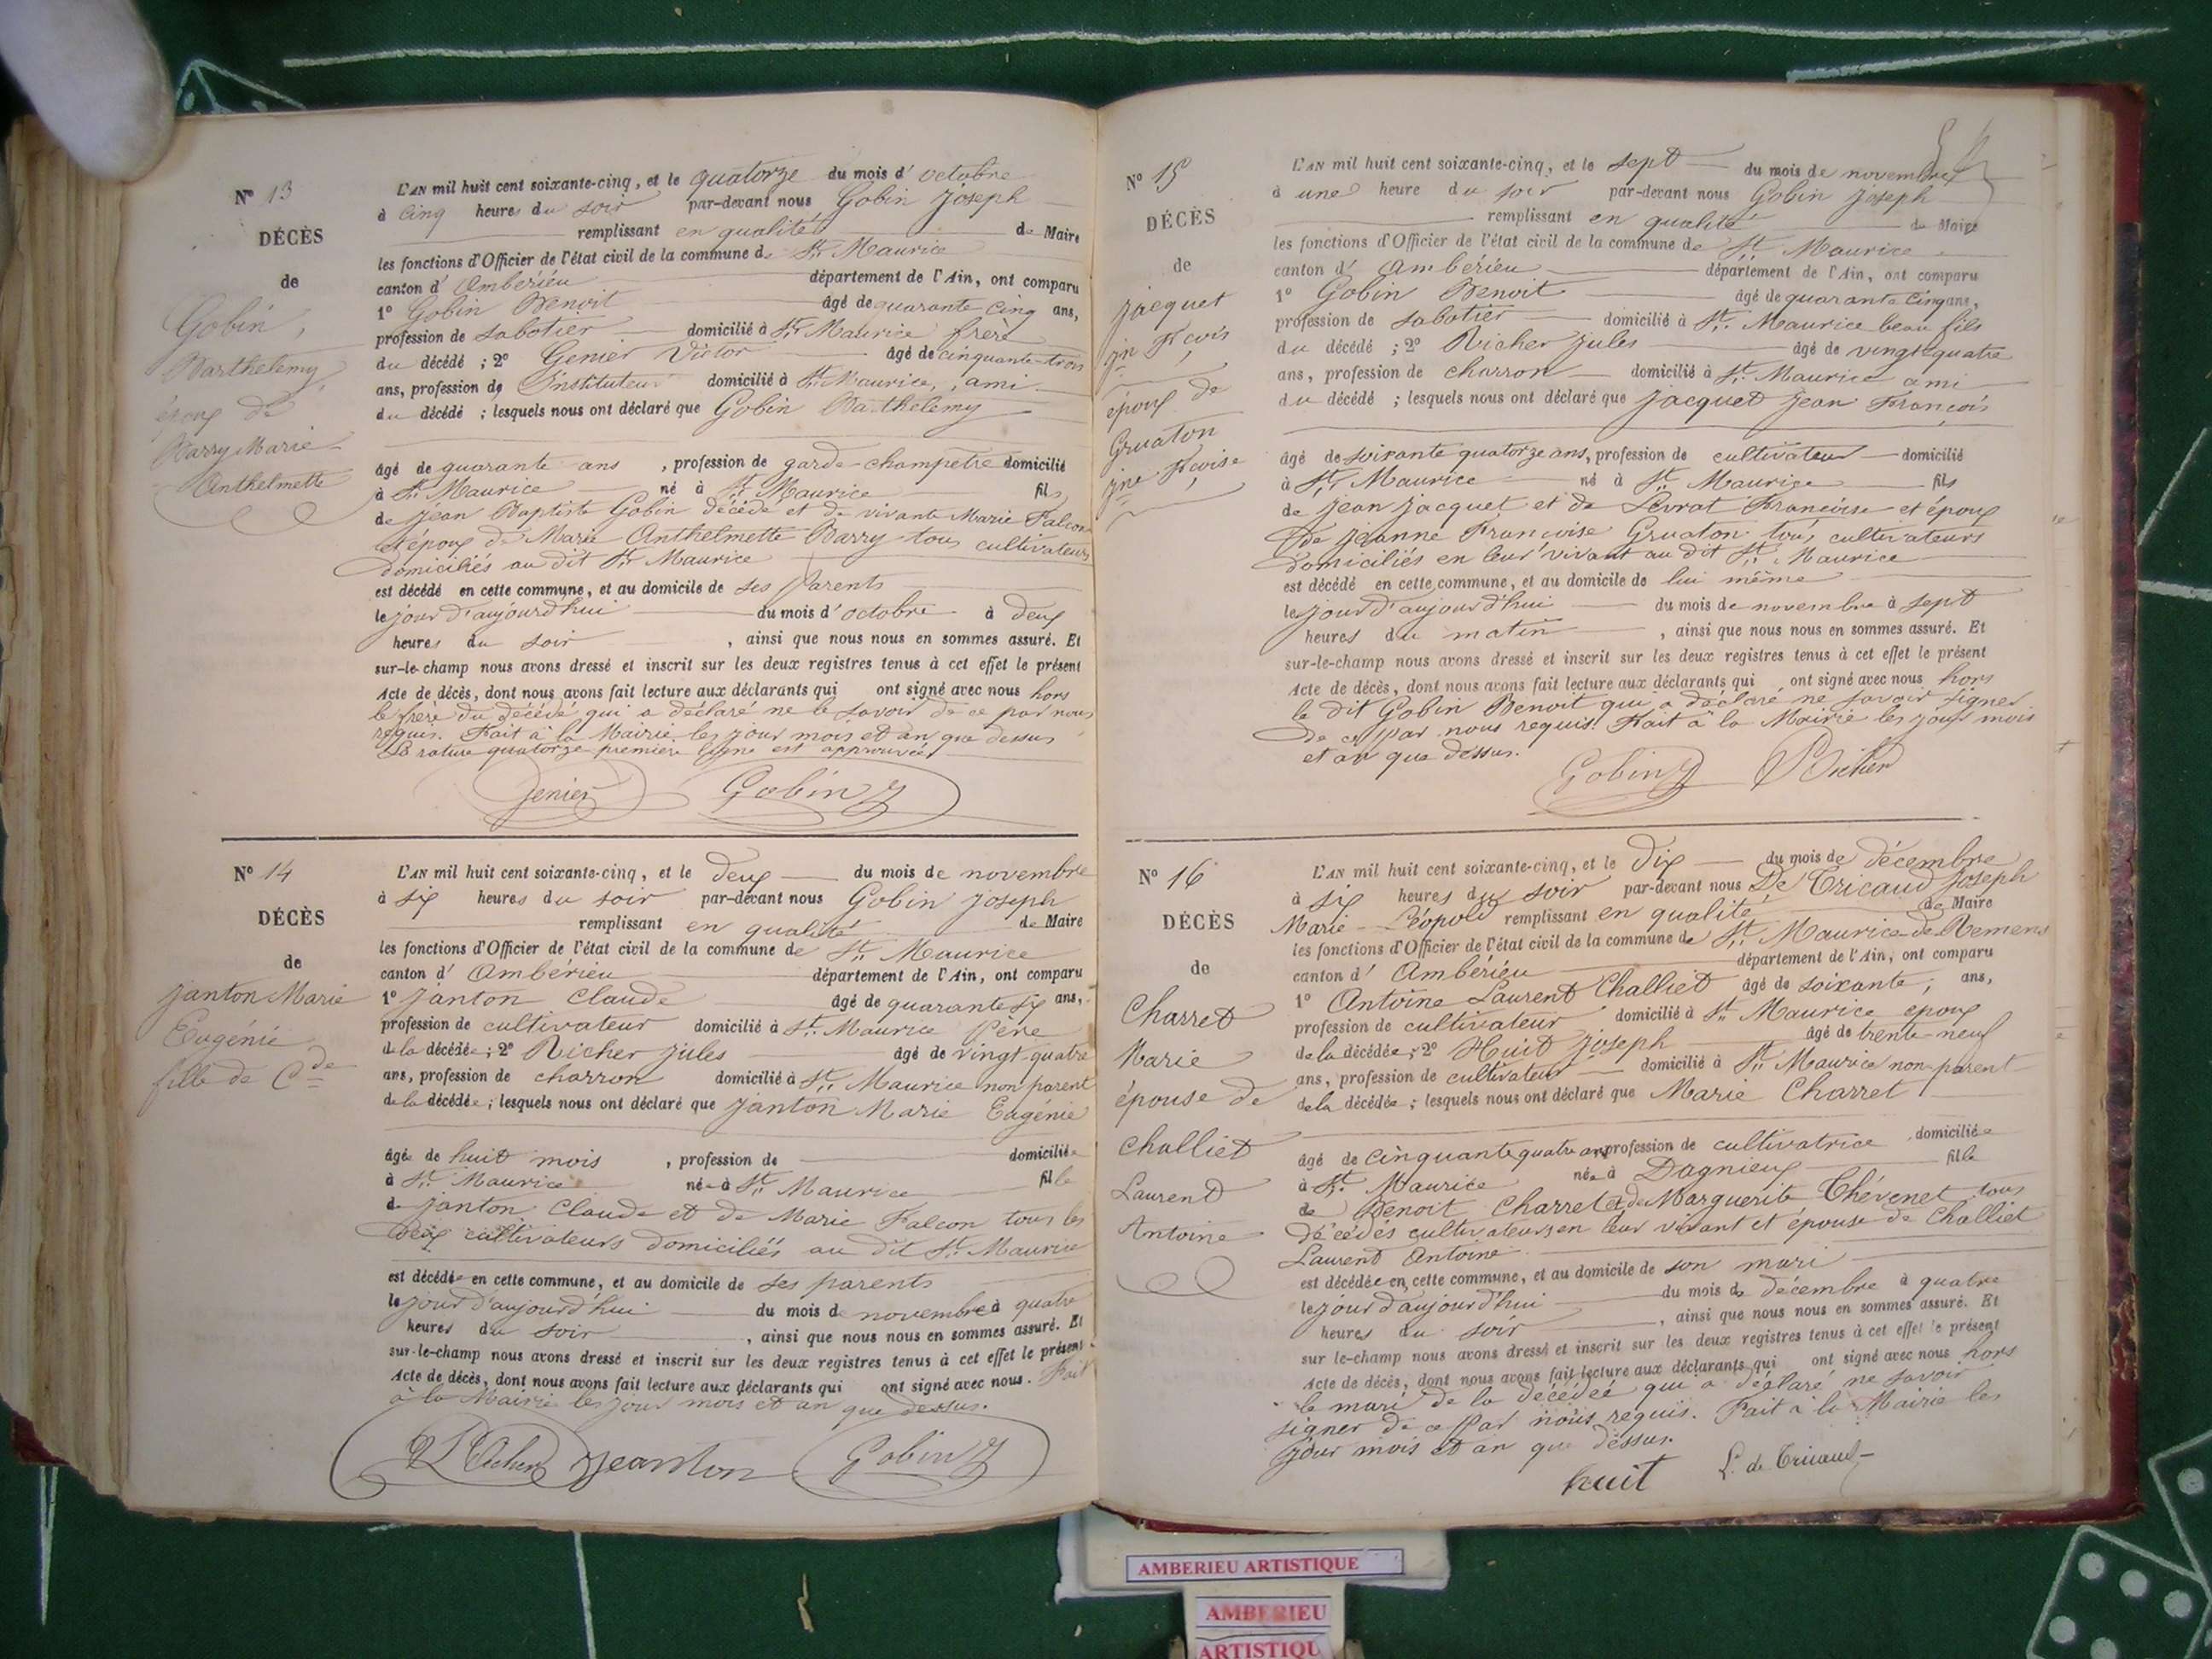 N° 13
DÉCÈS
de
Gobin,
Barthelemy,
époux de
Barry Marie
Anthelmette
L'AN mil huit cent soixante-cinq, et le quatorze du mois d'octobre
à cinq heures du soir par-devant nous Gobin Joseph
remplissant en qualité de Maire
les fonctions d'Officier de l'état civil de la commune de St Maurice
canton d'Ambérieu département de l'Ain, ont comparu
1° Gobin Benoit âgé de quarante cinq ans,
profession de sabotier domicilié à St Maurice frère
du décédé ; 2° Genier Victor âgé de cinquante-trois
ans, profession de Instituteur domicilié à St Maurice, ami
du décédé ; lesquels nous ont déclaré que Gobin Barthelemy
âgé de quarante ans, profession de garde-champêtre domicilié
à St Maurice né à St Maurice fils
de Jean Baptiste Gobin décédé et de vivante Marie Falcon
et époux de Marie Anthelmette Barry tous cultivateurs
domiciliés au dit St Maurice
est décédé en cette commune, et au domicile de ses parents
le jour d'aujourd'hui du mois d'octobre à deux
heures du soir, ainsi que nous nous en sommes assuré. Et
sur-le-champ nous avons dressé et inscrit sur les deux registres tenus à cet effet le présent
Acte de décès, dont nous avons fait lecture aux déclarants qui ont signé avec nous hors
le frère du décédé qui a déclaré ne le savoir de ce par nous
requis. Fait à la Mairie les jour mois et an que dessus
La rature quatorze première ligne est approuvée
Genier Gobin J
N° 14
DÉCÈS
de
Janton Marie
Eugénie
fille de Cde
L'AN mil huit cent soixante-cinq, et le deux du mois de novembre
à six heures du soir par-devant nous Gobin Joseph
remplissant en qualité de Maire
les fonctions d'Officier de l'état civil de la commune de St Maurice
canton d'Ambérieu département de l'Ain, ont comparu
1° Janton Claude âgé de quarante six ans,
profession de cultivateur domicilié à St Maurice Père
de la décédée ; 2° Richer Jules âgé de vingt-quatre
ans, profession de charron domicilié à St Maurice non parent
de la décédée ; lesquels nous ont déclaré que Janton Marie Eugénie
âgée de huit mois, profession de domiciliée
à St Maurice née à St Maurice fille
de Janton Claude et de Marie Falcon tous les
deux cultivateurs domiciliés au dit St Maurice
est décédée en cette commune, et au domicile de ses parents
le jour d'aujourd'hui du mois de novembre à quatre
heures du soir, ainsi que nous nous en sommes assuré. Et
sur-le-champ nous avons dressé et inscrit sur les deux registres tenus à cet effet le présent
Acte de décès, dont nous avons fait lecture aux déclarants qui ont signé avec nous. Fait
à la Mairie les jour mois et an que dessus.
Richer Jeanton Gobin J
N° 15
DÉCÈS
de
Jacquet
Jn Fçois
époux de
Gruaton
Jne Fçoise
L'AN mil huit cent soixante-cinq, et le sept du mois de novembre
à une heure du soir par-devant nous Gobin Joseph
remplissant en qualité de Maire
les fonctions d'Officier de l'état civil de la commune de St Maurice
canton d'Ambérieu département de l'Ain, ont comparu
1° Gobin Benoit âgé de quarante cinq ans,
profession de sabotier domicilié à St Maurice beau fils
du décédé ; 2° Richer Jules âgé de vingt quatre
ans, profession de charron domicilié à St Maurice ami
du décédé ; lesquels nous ont déclaré que Jacquet Jean François
âgé de soixante quatorze ans, profession de cultivateur domicilié
à St Maurice né à St Maurice fils
de Jean Jacquet et de Levrat Françoise et époux
de Jeanne Françoise Gruaton tous cultivateurs
domiciliés en leur vivant au dit St Maurice
est décédé en cette commune, et au domicile de lui même
le jour d'aujourd'hui du mois de novembre à sept
heures du matin, ainsi que nous nous en sommes assuré. Et
sur-le-champ nous avons dressé et inscrit sur les deux registres tenus à cet effet le présent
Acte de décès, dont nous avons fait lecture aux déclarants qui ont signé avec nous hors
le dit Gobin Benoit qui a déclaré ne savoir signer
de ce par nous requis. Fait à la Mairie les jours mois
et an que dessus.
Gobin J Richer
N° 16
DÉCÈS
de
Charret
Marie
épouse de
Challiet
Laurent
Antoine
L'AN mil huit cent soixante-cinq, et le dix du mois de décembre
à six heures du soir par-devant nous De Tricaud Joseph
Marie-Léopold remplissant en qualité de Maire
les fonctions d'Officier de l'état civil de la commune de St Maurice-de-Remens
canton d'Ambérieu département de l'Ain, ont comparu
1° Antoine Laurent Challiet âgé de soixante, ans,
profession de cultivateur domicilié à St Maurice époux
de la décédée ; 2° Huit Joseph âgé de trente-neuf
ans, profession de cultivateur domicilié à St Maurice non-parent
de la décédée ; lesquels nous ont déclaré que Marie Charret
âgé de cinquante quatre ans profession de cultivatrice domiciliée
à St Maurice née à Dagnieux fille
de Benoit Charret et de Marguerite Thévenet tous
décédés cultivateurs en leur vivant et épouse de Challiet
Laurent Antoine
est décédée en cette commune, et au domicile de son mari
le jour d'aujourd'hui du mois de décembre à quatre
heures du soir, ainsi que nous nous en sommes assuré. Et
sur le-champ nous avons dressé et inscrit sur les deux registres tenus à cet effet le présent
Acte de décès, dont nous avons fait lecture aux déclarants qui ont signé avec nous hors
le mari de la décédée qui a déclaré ne savoir
signer de ce par nous requis. Fait à la Mairie les
jour mois et an que dessus.
huit L. de Tricaud
AMBERIEU ARTISTIQUE
AMBERIEU
ARTISTIQU